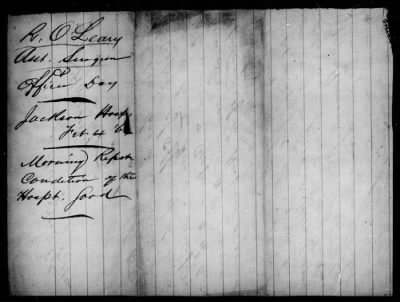 R. O'Leary
Asst. Surgeon
Officer Day
Jackson Hosp
Feb 4 '6
Morning Report
Condition of the
Hospt. Good